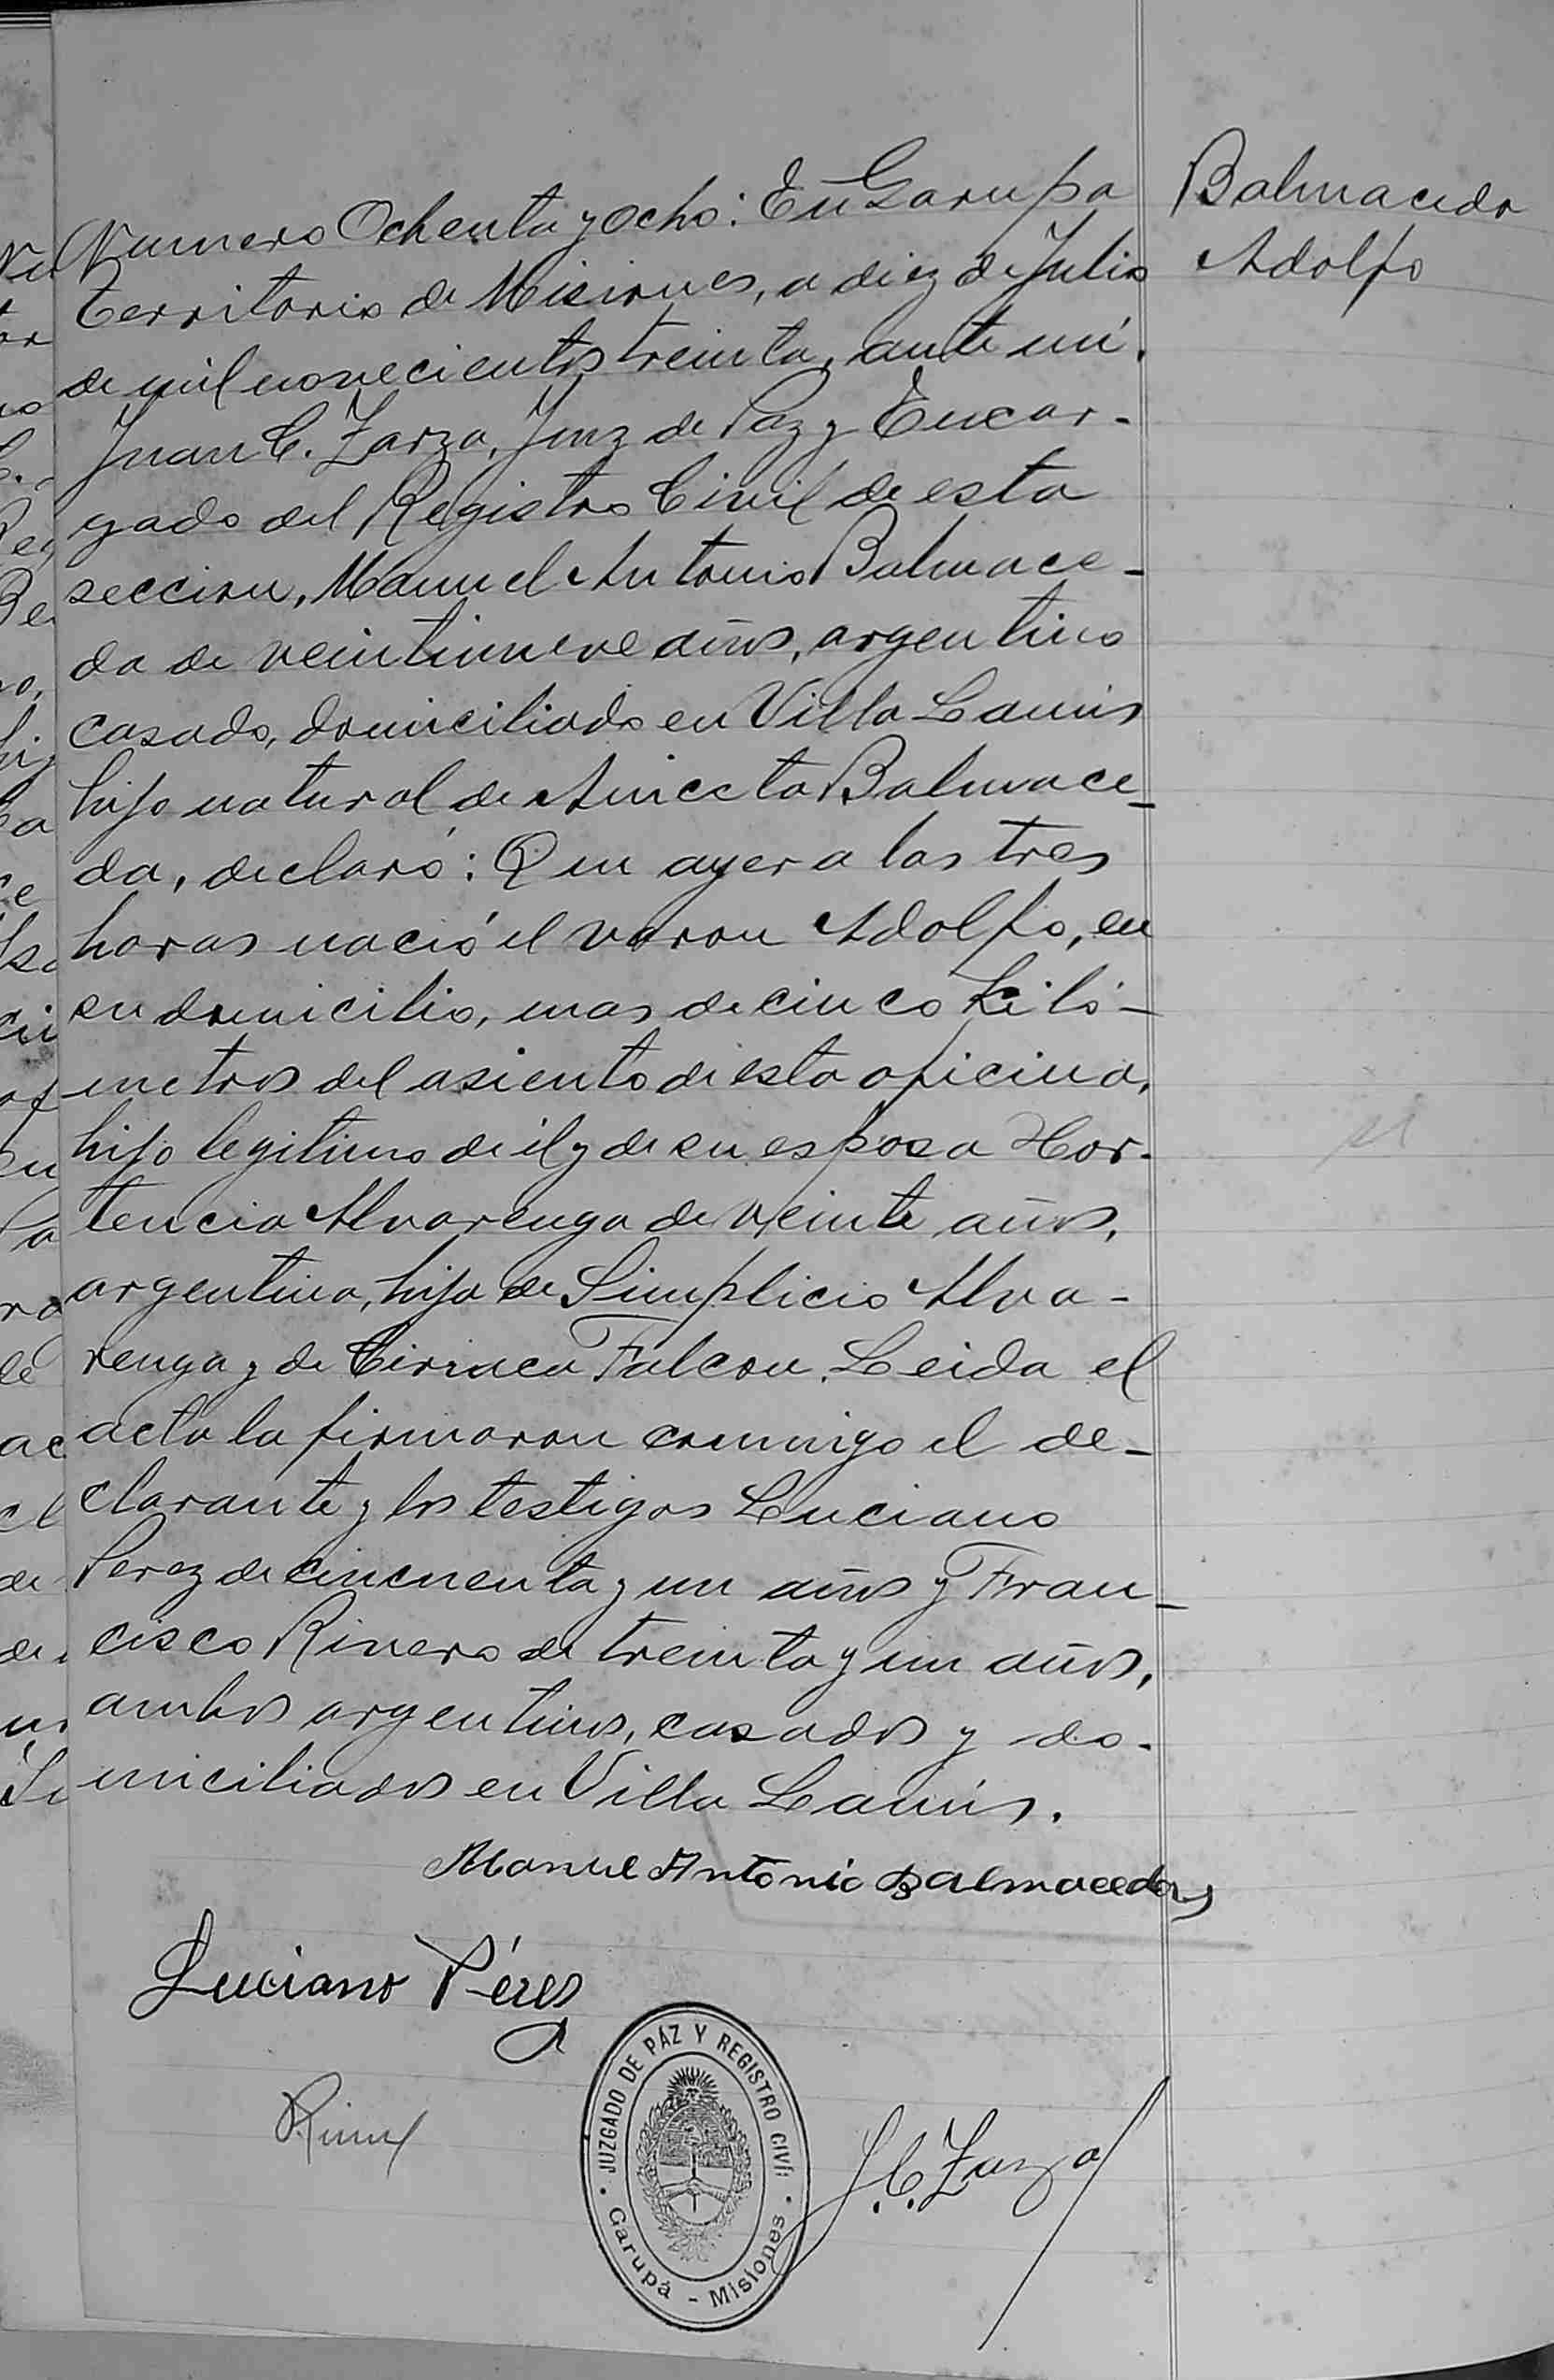 Balmaceda
Adolfo
Numero Ochenta y ocho: En Garupa
territorio de Misiones, a diez de Julio
de mil novecientos treinta, ante mí,
Juan C. Zarza, Juez de Paz y Encar-
gado del Registro Civil de esta
seccion, Manuel Antonio Balmace-
da de veintinueve años, argentino
casado, domiciliado en Villa Lanús
hijo natural de Aniceta Balmace-
da, declaró: Que ayer a las tres
horas nació el varon Adolfo, en
su domicilio, mas de cinco kiló-
metros del asiento de esta oficina,
hijo legitimo de él y de su esposa Hor-
tencia Alvarenga de veinte años,
argentina, hija de Simplicio Alva-
renga y de Ciriaca Falcon. Leida el
acta la firmaron conmigo el de-
clarante y los testigos Luciano
Perez de cincuenta y un años y Fran-
cisco Rivero de treinta y un años,
ambos argentinos, casados y do-
miciliados en Villa Lanús.
Manuel Antonio Balmaceda
Luciano Pérez
J. C. Zarza
JUZGADO DE PAZ Y REGISTRO CIVIL
Garupá - Misiones